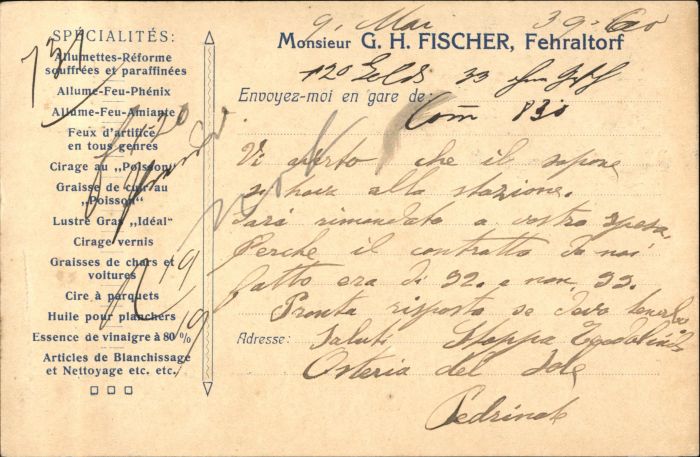 SPÉCIALITÉS:
Allumettes-Réforme
souffrées et paraffinées
Allume-Feu-Phénix
Allume-Feu-Amiante
Feux d'artifice
en tous genres
Cirage au „Poisson"
Graisse de cuir au
„Poisson"
Lustre Gras „Idéal"
Cirage vernis
Graisses de chars et
voitures
Cire à parquets
Huile pour planchers
Essence de vinaigre à 80%
Articles de Blanchissage
et Nettoyage etc. etc.
9. Mai
Monsieur G. H. FISCHER, Fehraltorf
120 33
Envoyez-moi en gare de:
Vi averto che il sapone
si trova alla stazione.
Sarà rimandato a vostro spesa
Perche il contratto da noi
fatto era di 32. e non 33.
Pronta risposta se devo tenerlo
Adresse: Saluti Stoppa
Osteria del Sole
Pedrinate